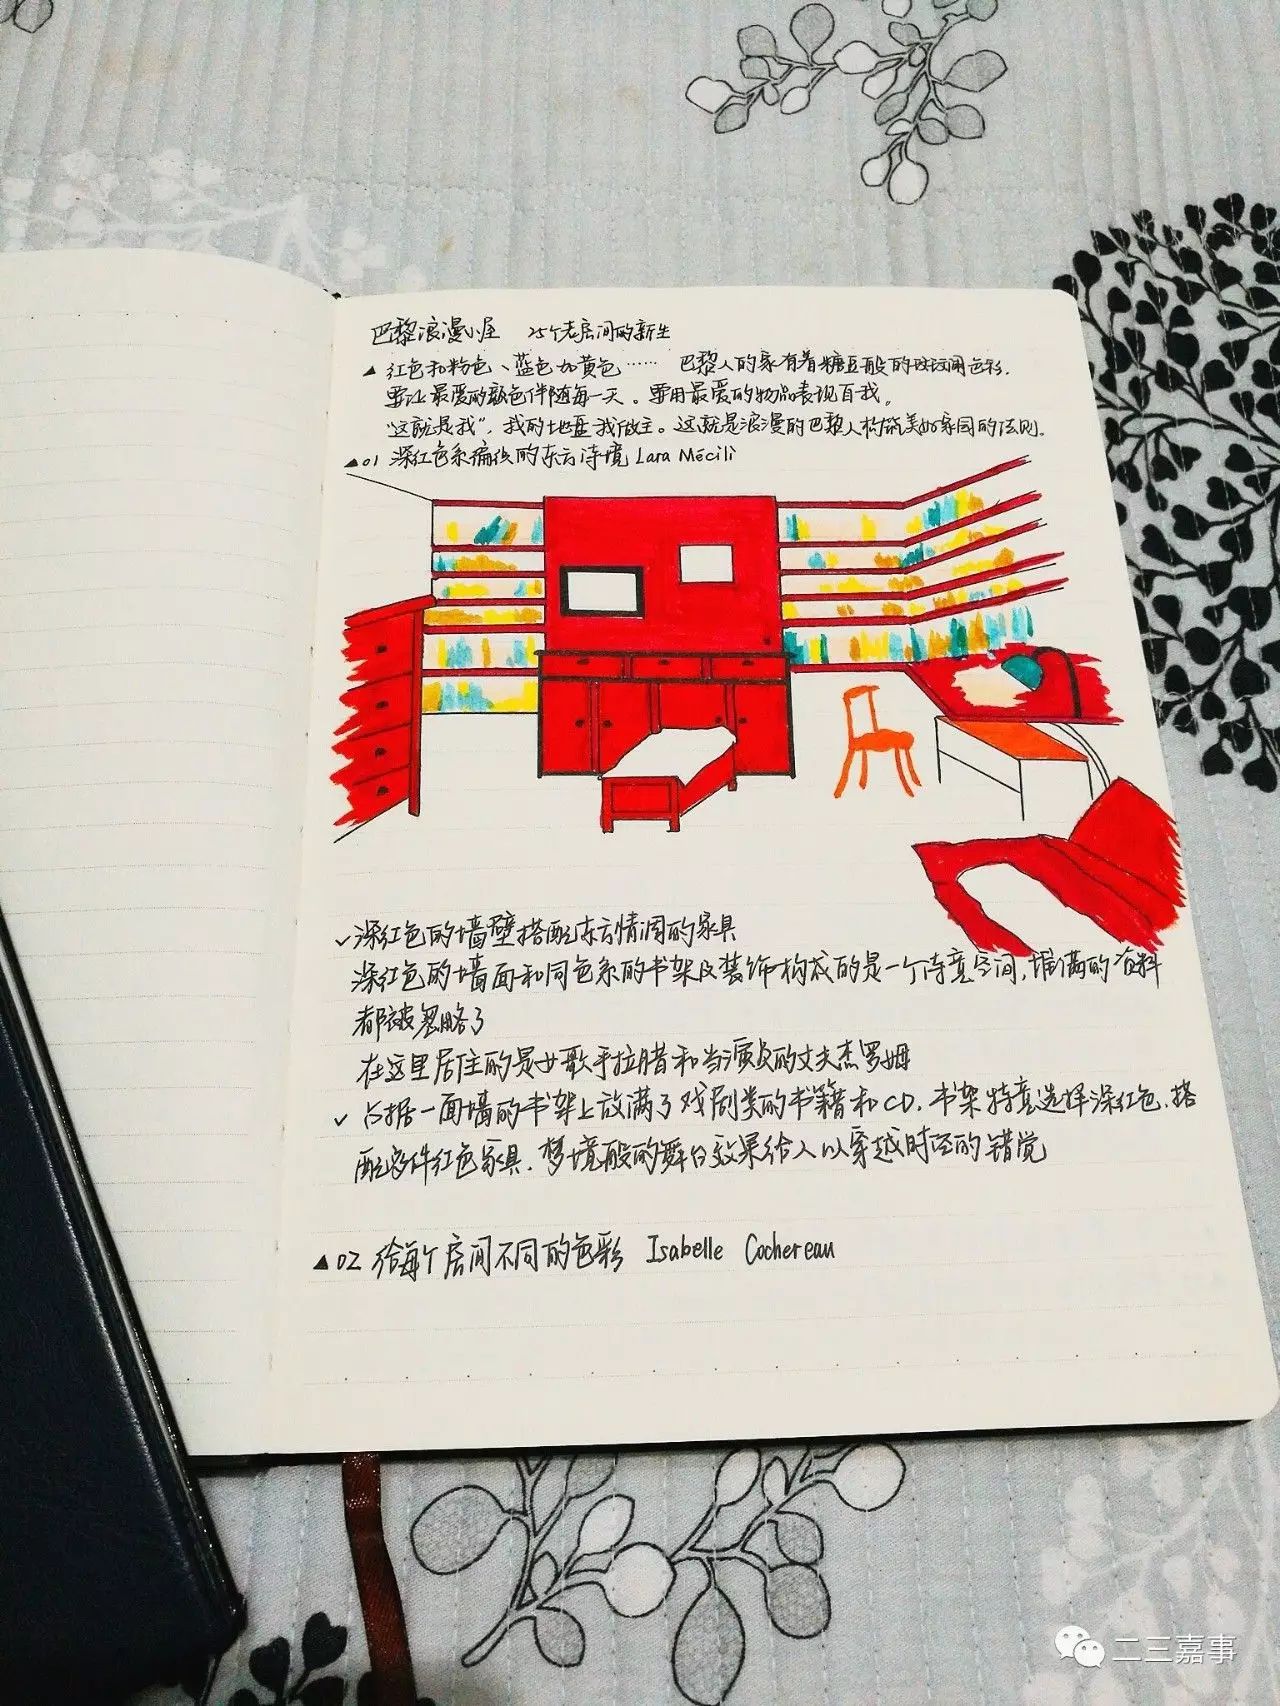 巴黎浪漫小屋 25个老房间的新生
▲ 红色和粉色、蓝色和黄色…… 巴黎人的家有着糖豆般的斑斓色彩.
要让最爱的颜色伴随每一天。要用最爱的物品表现自我。
“这就是我”，我的地盘我做主。这就是浪漫的巴黎人构筑美好家园的法则.
▲01 深红色系编织的东方诗境 Lara Mécili
✓深红色的墙壁搭配东方情调的家具
深红色的墙面和同色系的书架及装饰构成的是一个诗意空间,堆满的资料
都被忽略了
在这里居住的是女歌手拉腊和当演员的丈夫杰罗姆
✓ 占据一面墙的书架上放满了戏剧类的书籍和CD.书架特意选择深红色.搭
配多件红色家具.梦境般的舞台效果给人以穿越时空的错觉
▲02 给每个房间不同的色彩 Isabelle Cochereau
二三嘉事